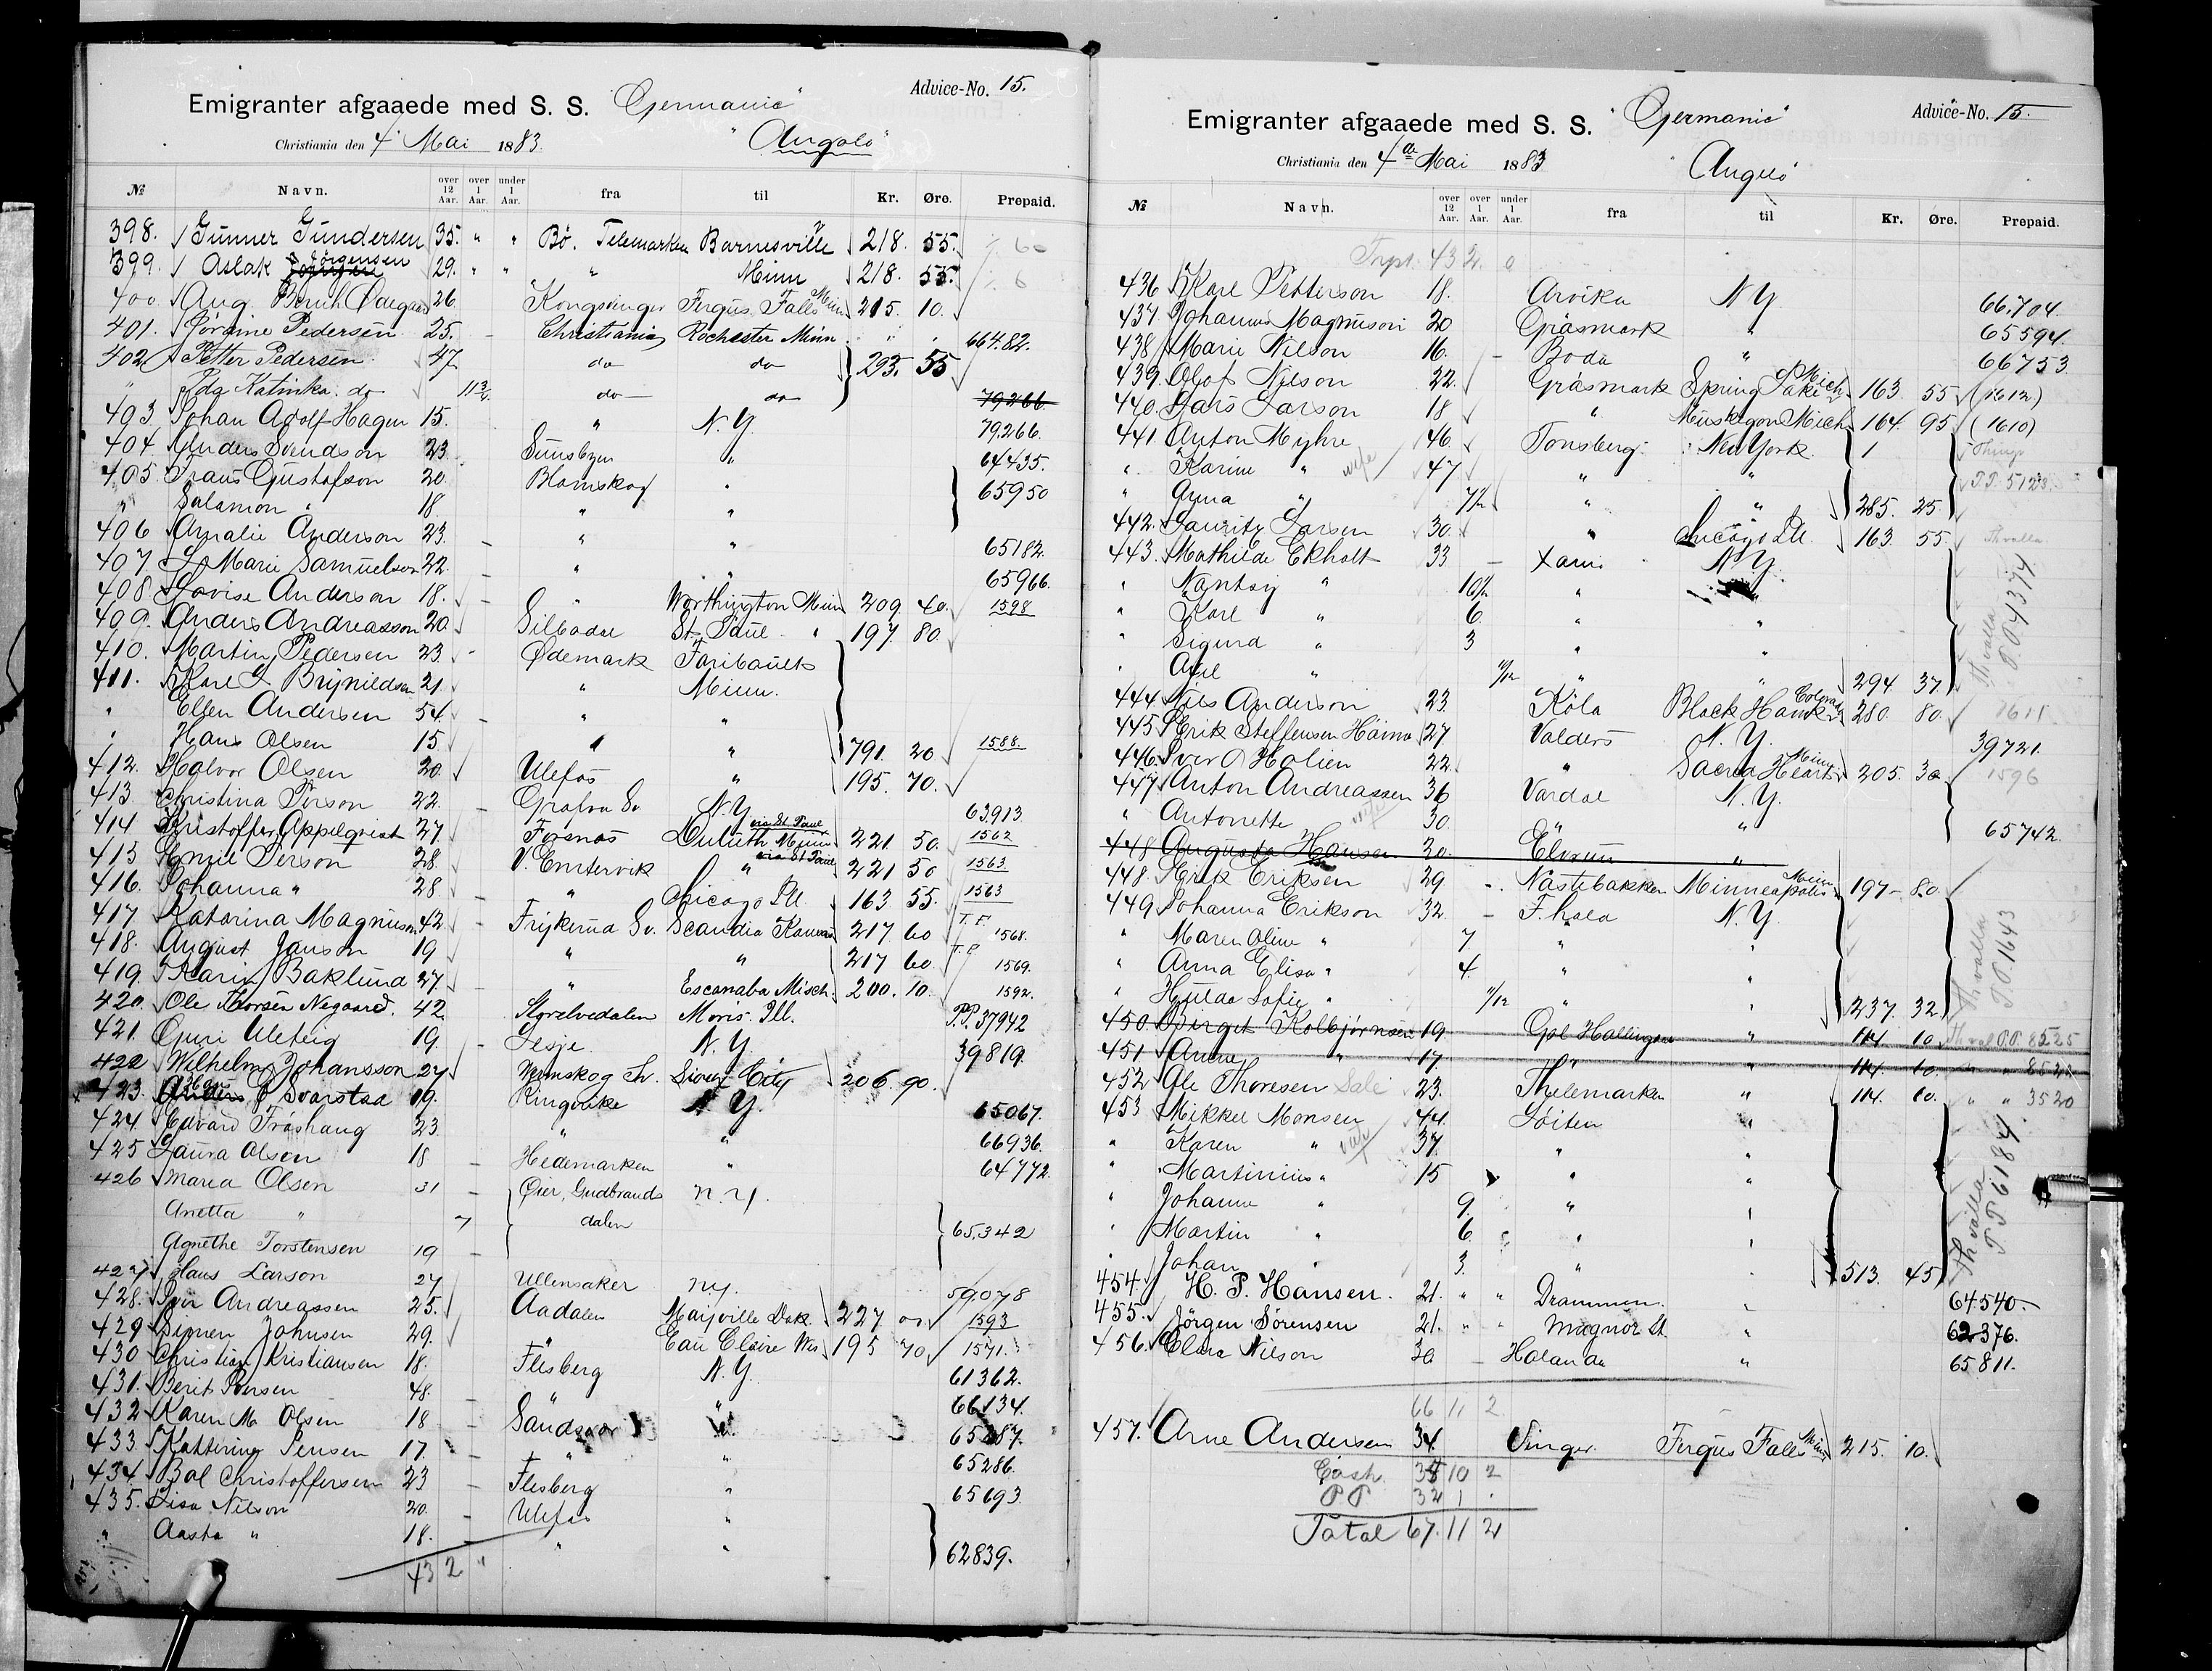 Advice-No. 15.
Emigranter afgaaede med S. S. "Germanic"
Christiania den 4 Mai 1883. "Angelo"
№ Navn. over 12 Aar. over 1 Aar. under 1 Aar. fra til Kr. Øre. Prepaid.
398. Gunner Gundersen 35. " " Bø. Telemarken Barnesville 218. 55.
399. Aslak Jörgensen 29. " " " Minn 218. 55.
400 Aug. 26 Kongsvinger Fergus Falls Minn 215. 10.
401. Jörgine Pedersen 25. - Christiania Rochester Minn " " 66482.
402 Petter Pedersen 47 do do } 293. 55
" Ida Katinka do 11 1/2 do do 79266.
403 Johan Adolf Hagen 15. " N.Y. 79266.
404 Anders Svendson 23 " 64435.
405 Frans Gustafson 20 Blomskog " 65950
" Salamon " 18 " "
406 Amalie Anderson 23. - " " 65182.
407 Marie Samuelson 22. - " " 65966.
408 Lovise Anderson 18. - " Worthington Minn 209. 40. 1598
409. Anders Andreasson 20 Silbodal St. Paul " 197. 80
410. Martin Pedersen 23 - Ødemark Faribault
411. Karl Brynildsen 21. " Minn.
" Ellen Andersen 54 - " "
" Hans Olsen 15 " " 791. 20 1588.
412. Halvor Olsen 20. Ulefos " 195. 70.
413 Christina Person 22. - Sv N.Y. 63913
414 Kristoffer Appelqvist 27. Fosnäs Duluth Minn via St Paul 221 50. 1562
415 Emil Person 28. V. Emtervik " via St Paul 221 50 1563.
416. Johanna " 28 - " Chicago Ill. 163 55. 1563
417 Katarina Magnuson 42. - Frykerud Sv. Scandia Kansas 217. 60 T. P. 1568.
418. August Janson 19 " " 217 60 T. P. 1569.
419. Karin Baklund 27. - " Escanaba Misch. 200. 10. 1592.
420. Ole Thorsen Negaard. 42 Storelvedalen Moris. Ill. P.P. 37942
421. Guri Uleteig 19. - Lesje. N.Y. 39819.
422 Wilhelm Johansson 27 Sv. Sioux City 206. 90.
423. Svarstad 19. Ringerike N.Y. 65067.
424. Edvard Fröshaug 23 " " 66936.
425 Laura Olson 18 - Hedemarken " 64772.
426 Marea Olsen 31 - Øier, Gudbrands n.y.
Anetta " 7 dalen } 65,342
Agnethe Torstensen 19 -
427 Hans Larson 27 Ullensaker ny. 59078
428. Iver Andreassen 25. Aadalen Mayville Dak. 227 00. 1593
429 Simen Johnsen 29. " Eau Claire Wis 195 70 1571.
430 Christian Kristiansen 18. Flesberg N.Y. 61362.
431. Berit 48. - " " 66134.
432 Karen M. Olsen 18 - Sandsvær
433 Kattering Jensen 17. - " " 65286.
434 Bal Christoffersen 23 - Flesberg " 65693
435. Lisa Nilson 20. - Ulefos "
" Aasta " 18. - " " } 62839.
43 2 "
Advice-No. 15.
Emigranter afgaaede med S. S. "Germanic"
Christiania den 4de Mai 1883 "Angelo"
№ Navn. over 12 Aar. over 1 Aar. under 1 Aar. fra til Kr. Øre. Prepaid.
Trspt. 43 2. 0
436 Karl Petterson 18. Arvika N.Y. 66,704.
437 Johannes Magnuson 20 Gräsmark " 65594.
438 Marie Nilson 16. - Boda " 66753
439. Olof Nilson 22. Gräsmark Spring Lake Mich 163. 55 (1612)
440 Lars Larson 18 " Muskegon Mich 164. 95 (1610)
441. Anton Myhre 46. Tonsberg New York.
" Karine " wife 47 " P.P. 5123.
" Anna " 7 1/2 " " 285. 25
442 Lauritz Larsen 30. " Chicago Ill. 163. 55. Thvalla
443. Mathilde Ekholt 33 - Xania N.Y.
" " 10 1/2 " "
" Karl " 6. " "
" Sigurd " 3 " "
" Axel " 11/12 " " 294. 37 Thvalla
444 Nils Anderson 23. Köla Black Hawk Colorado 280. 80. 1611
445 Erik Steffensen 27 Valders N.Y. 39721.
446. Iver O Holien 22. " Sacred Heart Minn 205. 30 1596
447 Anton Andreassen 36 Vardal N.Y.
" Antonette wife 30. " " 65742.
448 Augusta Hansen 20. Elverum "
448. Erik Eriksen 29 Nästebakken Minneapolis Minn 197 - 80.
449 Johanna Erikson 32. - F.hald N.Y.
" Maren Oline " 7. " "
" Anna Elisa " 4. " "
" Hulda Sofie " 11/12 " " 237. 32 Thvalla P.P. 1643
450. Birget Kolbjørnsen 19. Gol Hallingdal " 114. 10 P.P. 8525
451 Anne " 17. " " 114. 10.
452 Ole Thoresen 23. Thelemarken " 114. 10. " " 3520
453 Mikkel Monsen 44. Löiten "
" Karen " wife 37. " "
" Martinius " 15 " "
" Johanne " 9. " "
" Martin " 6. " "
" Johan " 3. " 513. 45 Thvalla P.P. 6184.
454. H. P. Hansen. 21. " " Drammen. " 64540.
455. Jörgen Sörensen 21. " " Magnor St. " 62376.
456. Clara Nilson 30 - " 65811.
66 11 2
457. Arne Andersen 34. Vinger Fergus Falls Minn 215. 10.
Cash. 10 2
PP 32 1 .
Total 67. 11 2